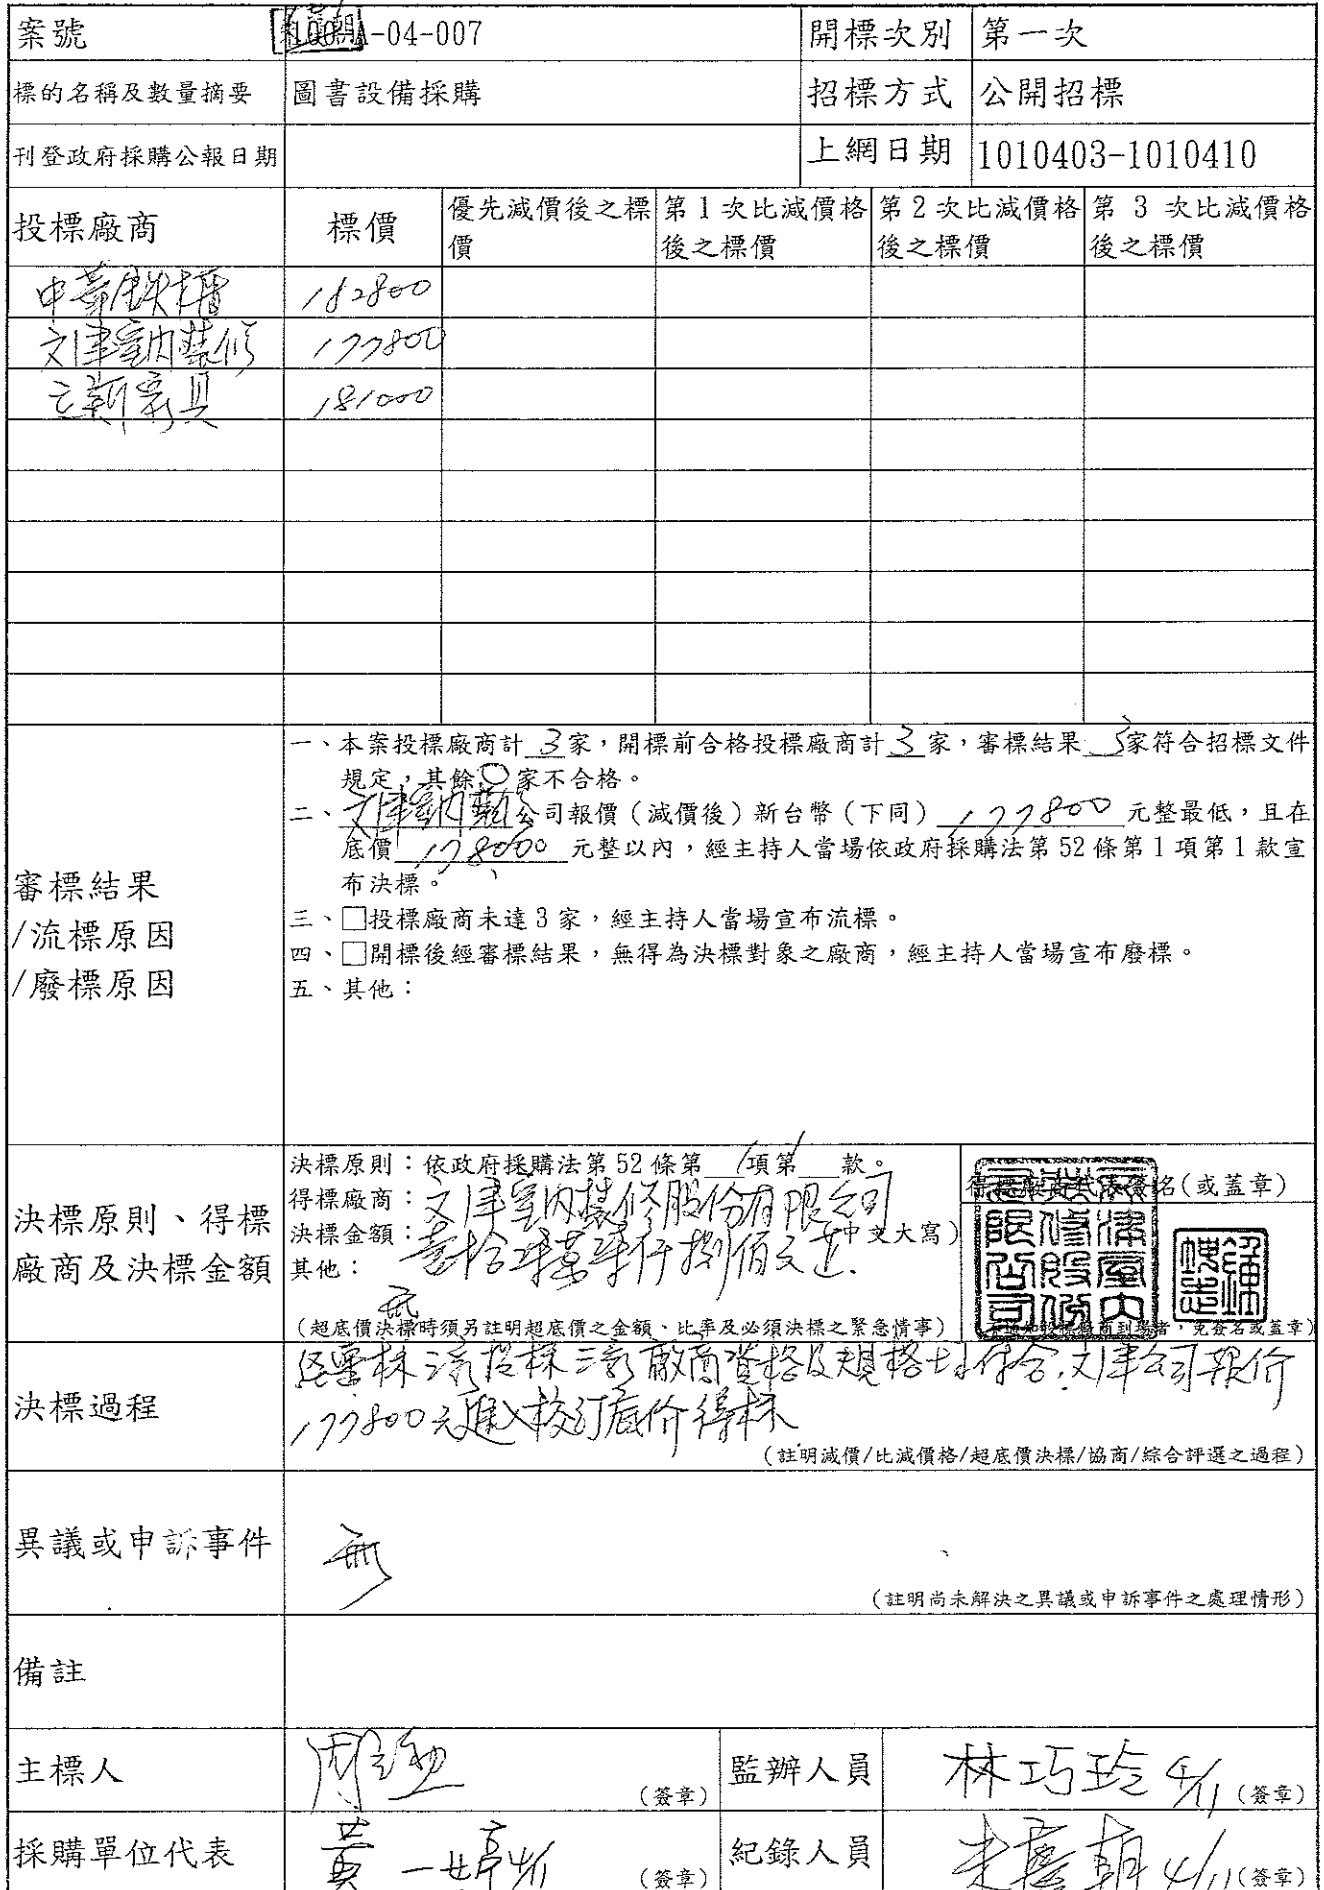 案號 -04-007 開標次別 第一次
標的名稱及數量摘要 圖書設備採購 招標方式 公開招標
刊登政府採購公報日期 上網日期 1010403-1010410
投標廠商 標價 優先減價後之標價 第1次比減價格後之標價 第2次比減價格後之標價 第3次比減價格後之標價
中華鉄櫃 182800
文津室內裝修 177800
立新家具 181000
審標結果
/流標原因
/廢標原因
一、本案投標廠商計3家，開標前合格投標廠商計3家，審標結果3家符合招標文件
規定，其餘0家不合格。
二、文津室內裝修公司報價（減價後）新台幣（下同）177800元整最低，且在
底價178000元整以內，經主持人當場依政府採購法第52條第1項第1款宣
布決標。
三、□投標廠商未達3家，經主持人當場宣布流標。
四、□開標後經審標結果，無得為決標對象之廠商，經主持人當場宣布廢標。
五、其他：
決標原則、得標
廠商及決標金額
決標原則：依政府採購法第52條第1項第1款。
得標廠商：文津室內裝修股份有限公司
決標金額：壹拾柒萬柒仟捌佰元正.（中文大寫）
其他：無
（超底價決標時須另註明超底價之金額、比率及必須決標之緊急情事）
得標廠商代表簽名(或蓋章)
文津室內裝修股份有限公司
者，免簽名或蓋章)
決標過程
經審標三家投標三家廠商資格及規格均符合.文津公司報价
177800元進入核订底价得标
（註明減價/比減價格/超底價決標/協商/綜合評選之過程）
異議或申訴事件 無
（註明尚未解決之異議或申訴事件之處理情形）
備註
主標人 (簽章) 監辦人員 林巧玲 4/11 (簽章)
採購單位代表 黃一婷 4/11 (簽章) 紀錄人員 朝 4/11 (簽章)